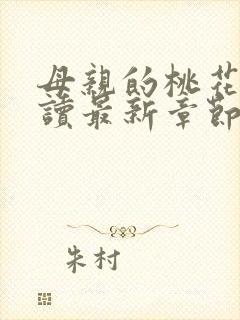 母親的桃花
讀最新章節
朱村